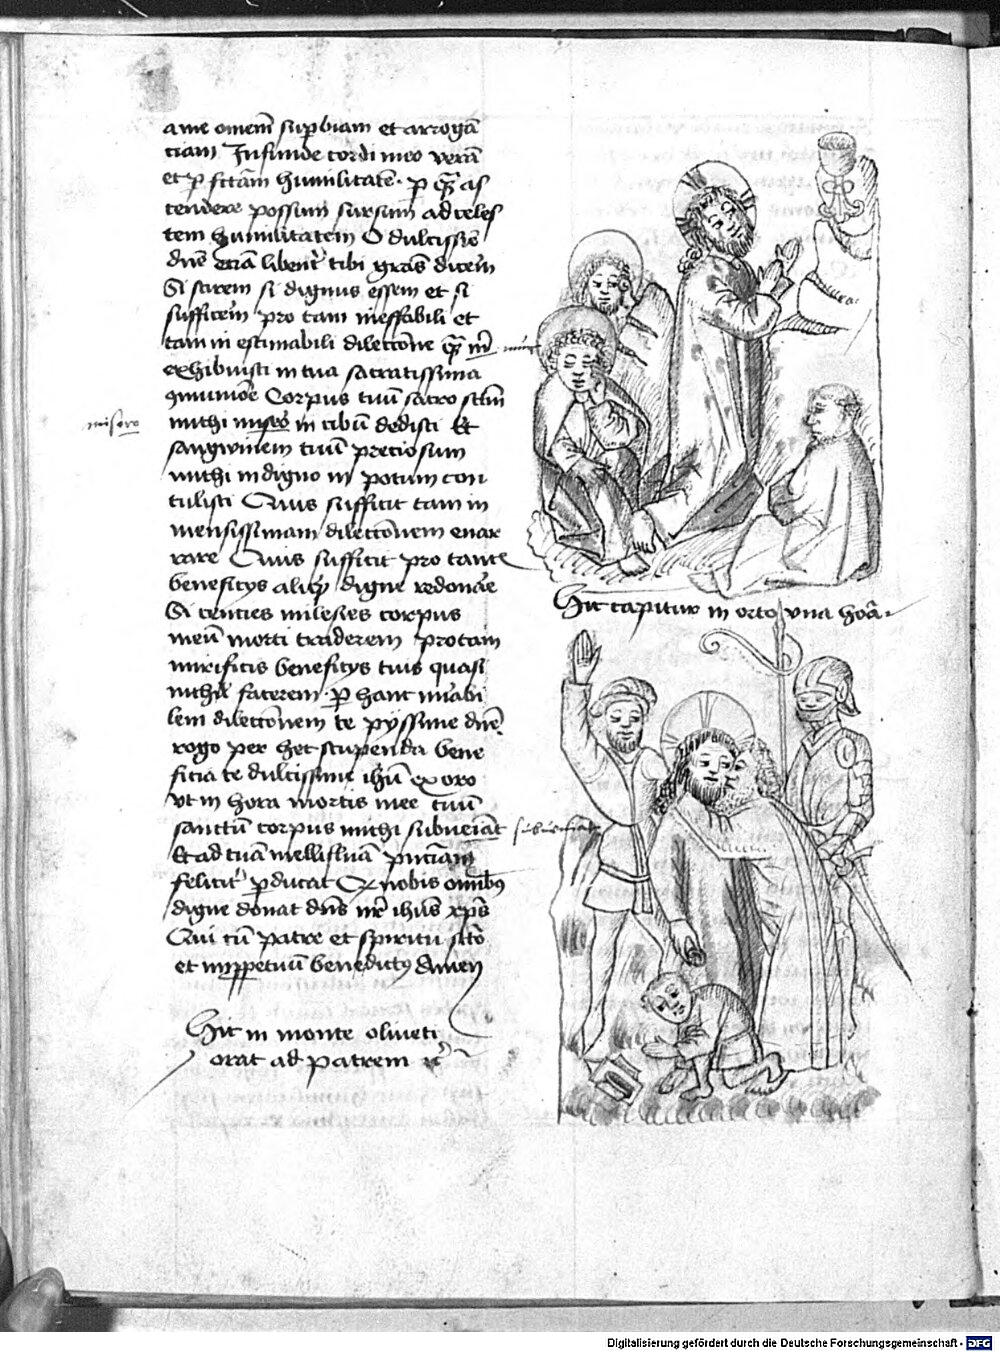 ame omnem supbiam et arrogā
ciam Infunde cordi meo verā
et pfectam humilitatē · p quā as
cendere possum sursum ad celes
tem humilitatem O dulcissīe
dnē etiā libent tibi grās dicerem
Si scirem si dignus essem et si
sufficerem pro tam ineffabili et
tam in estimabili dileccōne quā m
exhibuisti in tua sacratissima
9munione Corpus tuū sacro sctm
misero
mihi misero in cibū dedisti Et
sangwinem tuū preciosum
mihi indigno in potum con
tulisti Quis sufficit tam in
mensissimam dileccōnem enar
rare Quis sufficit pro tantis
beneficys aliqd digne redonare
Si centies milesies corpus
meū morti traderem pro tam
mirificis beneficys tuis quasi
nichil facerem · p hanc mirabi
lem dileccōnem te pyssime dnē
rogo per hec stupenda bene
ficia te dulcissime ihū exoro
Vt in hora mortis mee tuū
sanctū corpus mihi subueiāt subueniat
Et ad tuā melliflua
felicit pducat Qd nobis omibus
digne donat dns nr ihus xps
Qui cū patre et spiritu scto
et inppetuū benedictus Amen
Hic in monte oliueti
orat ad patrem rc
Hic capitur in orto vna hora
Digitalisierung gefördert durch die Deutsche Forschungsgemeinschaft - DFG